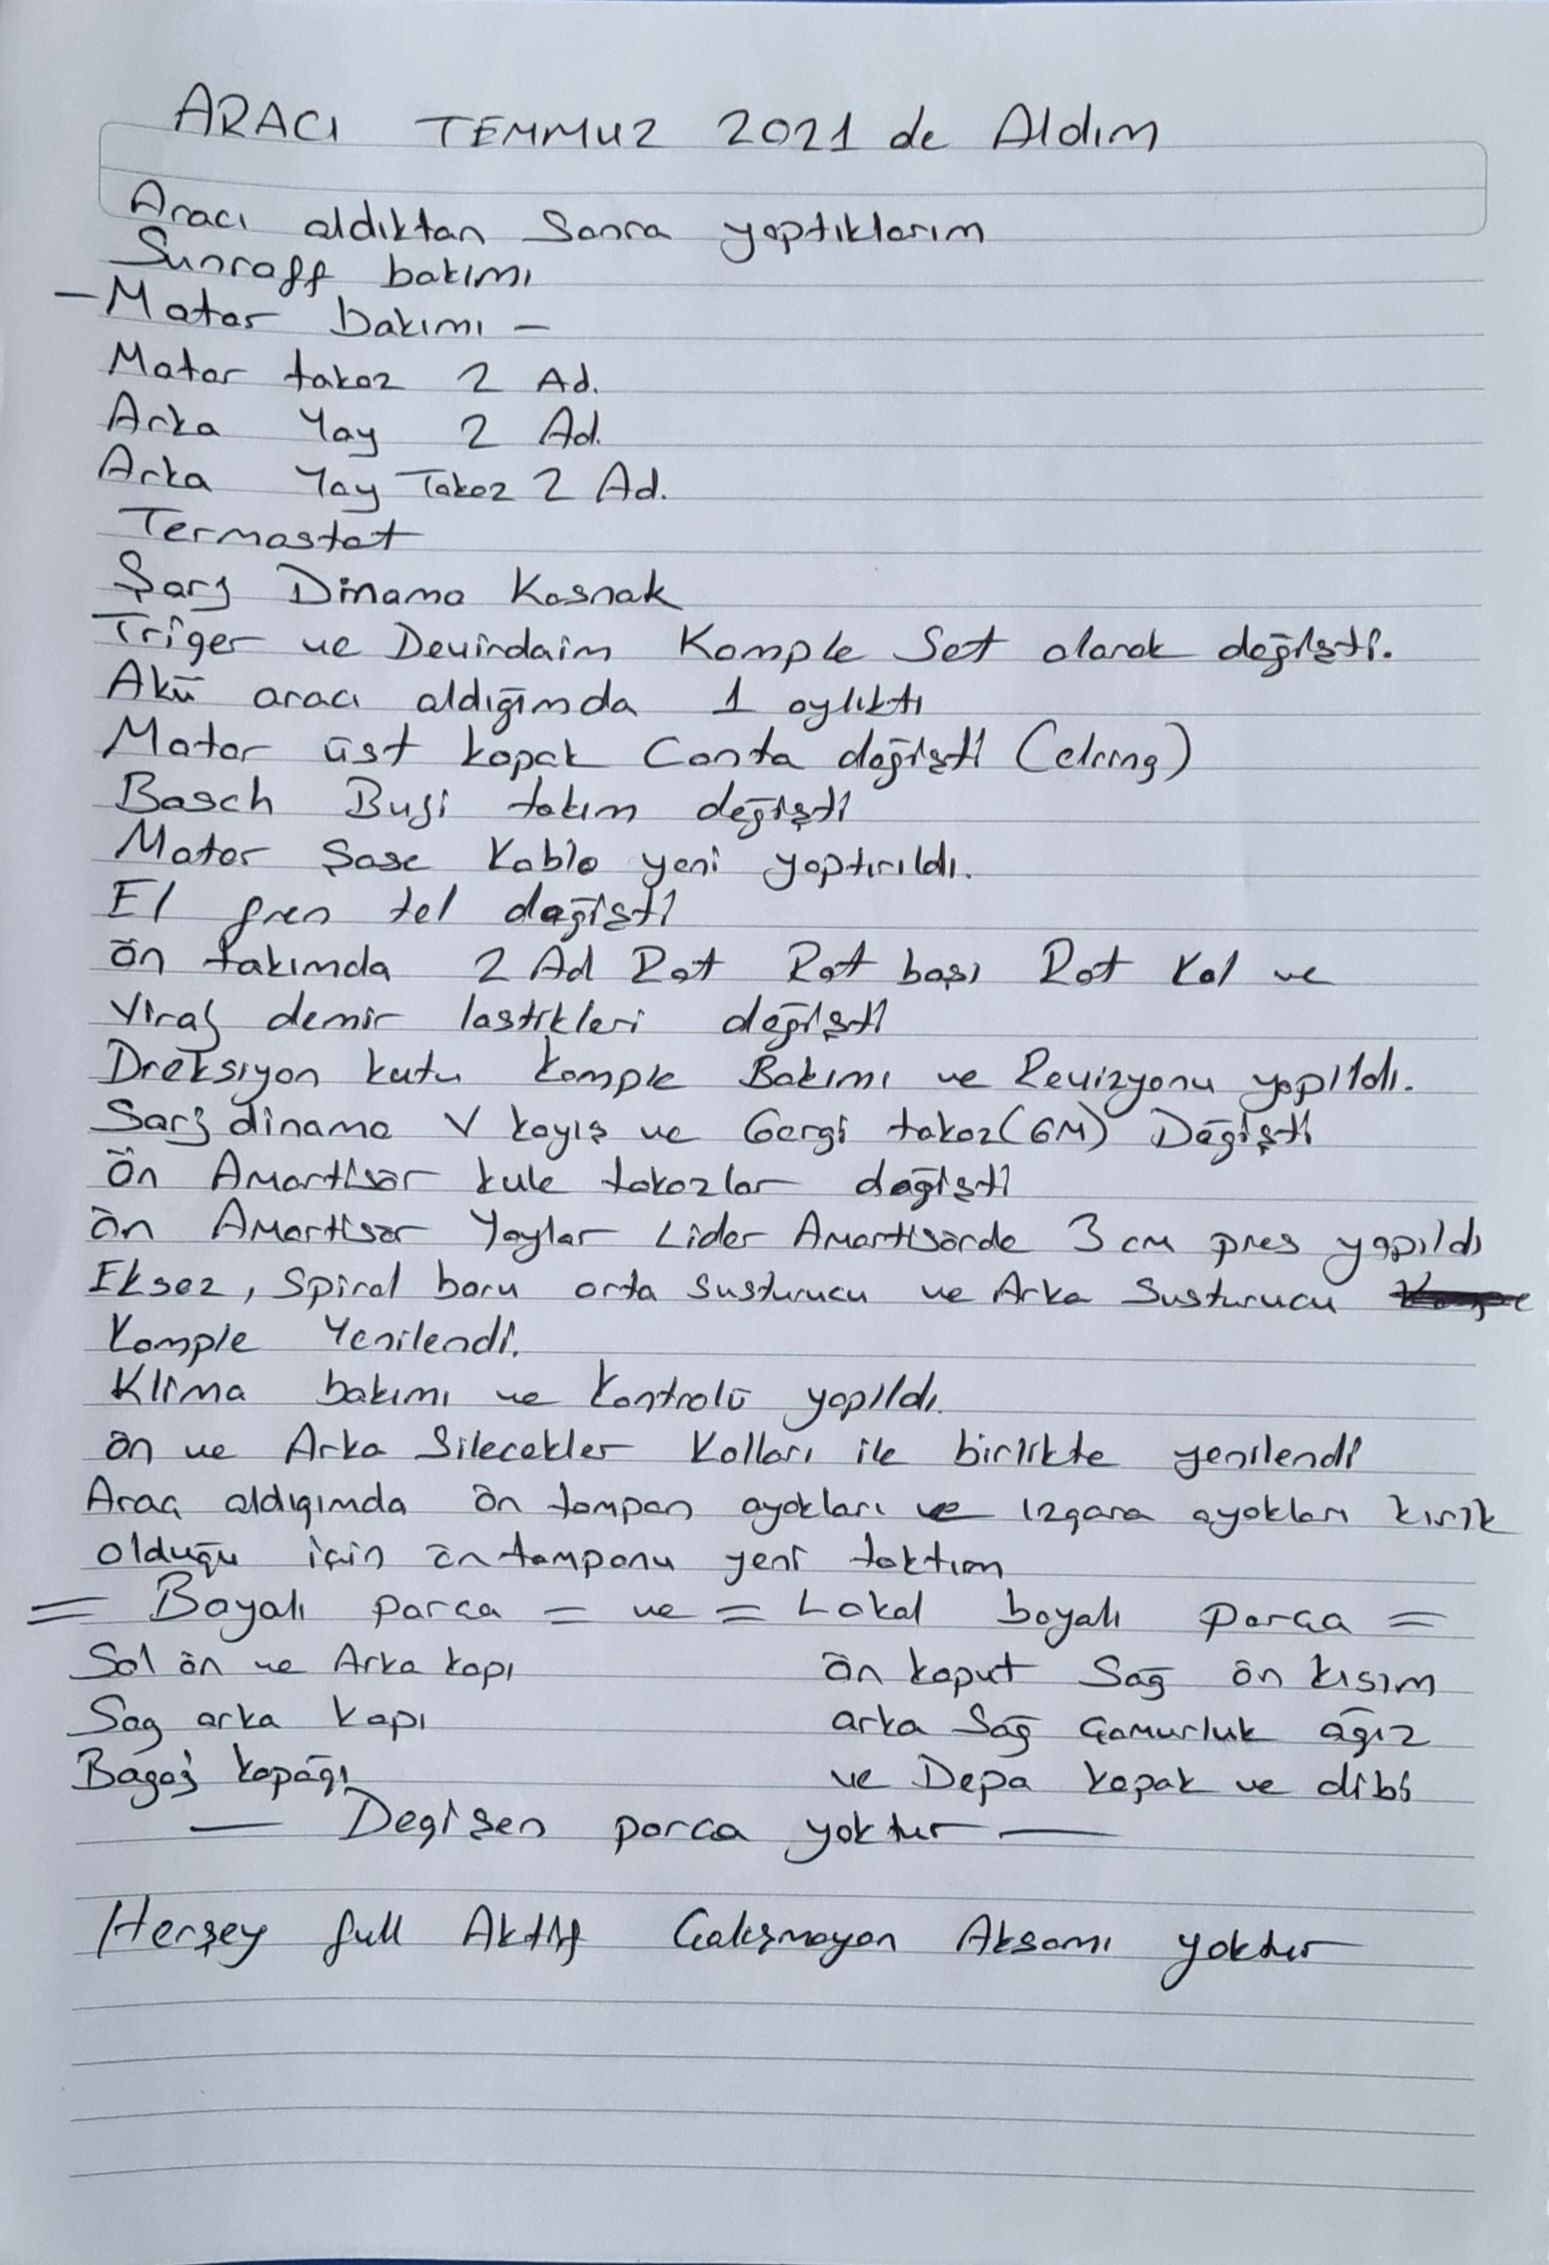 ARACI TEMMUZ 2021 de Aldım
Aracı aldıktan Sonra yaptıklarım
Sunroff bakımı
- Motor bakımı -
Motor takoz 2 Ad.
Arka Yay 2 Ad.
Arka Yay Takoz 2 Ad.
Termostat
Şarj Dinamo Kasnak
Triger ve Devirdaim Komple Set olarak değişti.
Akü aracı aldığımda 1 aylıktı
Motor üst kapak Conta değişti (elring)
Bosch Buji takım değişti
Motor Şase Kablo yeni yaptırıldı.
El fren tel değişti
ön takımda 2 Ad Rot Rot başı Rot Kol ve
Viraj demir lastikleri değişti
Dreksiyon kutu komple Bakımı ve Revizyonu yapıldı.
Sarj dinamo V kayış ve Gergi takoz (GM) Değişti
Ön Amortisör kule takozlar değişti
ön Amortisör Yaylar Lider Amortisörde 3 cm pres yapıldı
Eksoz, Spiral boru orta susturucu ve Arka Susturucu
Komple Yenilendi.
Klima bakımı ve kontrolü yapıldı.
ön ve Arka Silecekler Kolları ile birlikte yenilendi
Araç aldıgımda ön tampon ayakları ve ızgara ayakları kırık
olduğu için ön tamponu yeni taktım
= Boyalı parca = ve = Lokal boyalı parça =
Sol ön ve Arka kapı ön kaput Sağ ön kısım
Sag arka kapı arka Sağ Çamurluk ağız
Bagaj kapağı ve Depo kapak ve dibi
— Degişen parca yoktur —
Herşey full Aktif Çalışmayan Aksamı yoktur